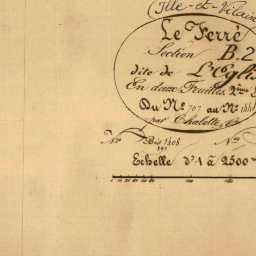 (Ille-et-Vilain
Le Ferré
Section B.2
dite de L'Eglis
En deux Feuilles, 2ème
Du Nº 707 au Nº
par Chalette
Nº Bis 1408 Nº
Echelle d'1 à 2500